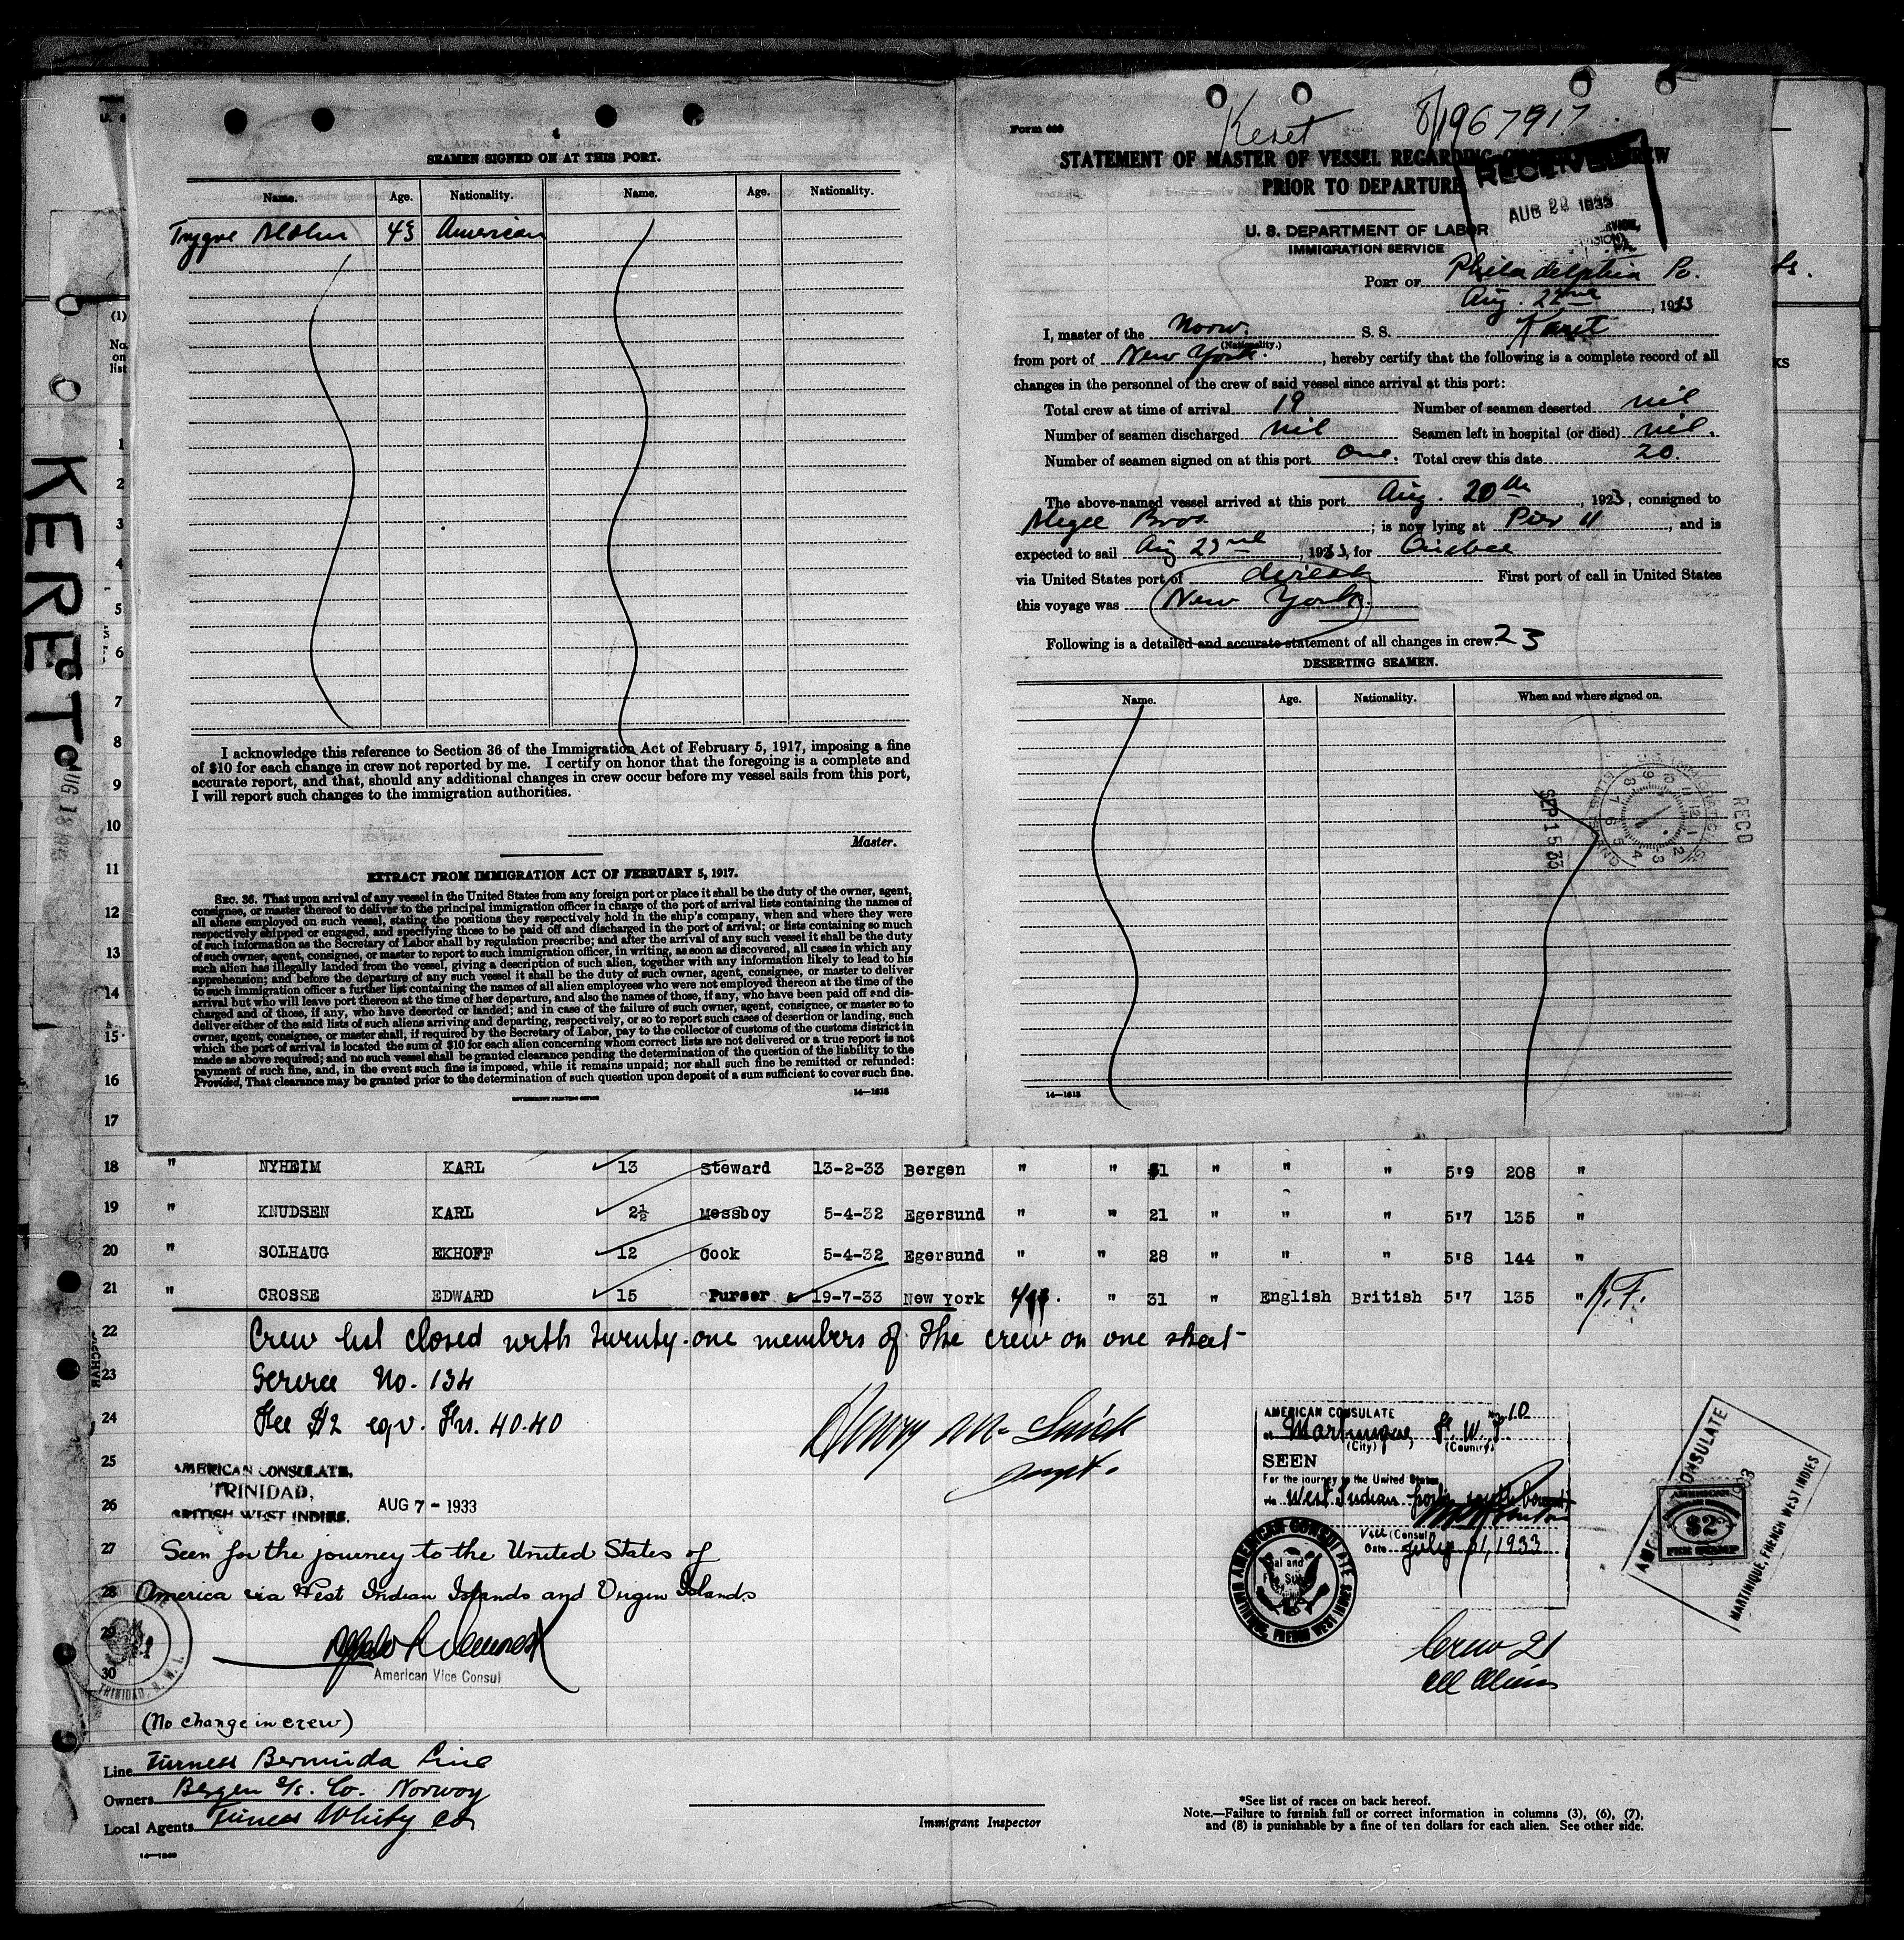 4
SEAMEN SIGNED ON AT THIS PORT.
Name. Age. Nationality. Name. Age. Nationality.
Trygve 43 American
I acknowledge this reference to Section 36 of the Immigration Act of February 5, 1917, imposing a fine
of $10 for each change in crew not reported by me. I certify on honor that the foregoing is a complete and
accurate report, and that, should any additional changes in crew occur before my vessel sails from this port,
I will report such changes to the immigration authorities.
Master.
EXTRACT FROM IMMIGRATION ACT OF FEBRUARY 5, 1917.
SEC. 36. That upon arrival of any vessel in the United States from any foreign port or place it shall be the duty of the owner, agent,
consignee, or master thereof to deliver to the principal immigration officer in charge of the port of arrival lists containing the names of
all aliens employed on such vessel, stating the positions they respectively hold in the ship's company, when and where they were
respectively shipped or engaged, and specifying those to be paid off and discharged in the port of arrival; or lists containing so much
of such information as the Secretary of Labor shall by regulation prescribe; and after the arrival of any such vessel it shall be the duty
of such owner, agent, consignee, or master to report to such immigration officer, in writing, as soon as discovered, all cases in which any
such alien has illegally landed from the vessel, giving a description of such alien, together with any information likely to lead to his
apprehension; and before the departure of any such vessel it shall be the duty of such owner, agent, consignee, or master to deliver
to such immigration officer a further list containing the names of all alien employees who were not employed thereon at the time of the
arrival but who will leave port thereon at the time of her departure, and also the names of those, if any, who have been paid off and dis-
charged and of those, if any, who have deserted or landed; and in case of the failure of such owner, agent, consignee, or master so to
deliver either of the said lists of such aliens arriving and departing, respectively, or so to report such cases of desertion or landing, such
owner, agent, consignee, or master shall, if required by the Secretary of Labor, pay to the collector of customs of the customs district in
which the port of arrival is located the sum of $10 for each alien concerning whom correct lists are not delivered or a true report is not
made as above required; and no such vessel shall be granted clearance pending the determination of the question of the liability to the
payment of such fine, and, in the event such fine is imposed, while it remains unpaid; nor shall such fine be remitted or refunded:
Provided, That clearance may be granted prior to the determination of such question upon deposit of a sum sufficient to cover such fine.
GOVERNMENT PRINTING OFFICE 14—1813
Form 689
STATEMENT OF MASTER OF VESSEL REGARDING CREW
PRIOR TO DEPARTURE
RECEIVED
AUG 22 1933
U. S. DEPARTMENT OF LABOR
IMMIGRATION SERVICE
PORT OF Philadelphia Pa.
Aug. 22nd, 1933
I, master of the Norw. S. S.
(Nationality.)
from port of New York., hereby certify that the following is a complete record of all
changes in the personnel of the crew of said vessel since arrival at this port:
Total crew at time of arrival 19 Number of seamen deserted nil
Number of seamen discharged nil Seamen left in hospital (or died) nil.
Number of seamen signed on at this port One. Total crew this date 20.
The above-named vessel arrived at this port Aug. 20th, 1923, consigned to
Megee Bros. ; is now lying at Pier 11, and is
expected to sail Aug 23rd, 1933, for Quebec
via United States port of direct First port of call in United States
this voyage was New York.
Following is a detailed and accurate statement of all changes in crew: 23
DESERTING SEAMEN.
Name. Age. Nationality. When and where signed on.
SEP 15 33
RECD
14—1813
KERET
AUG 18
(1)
No.
on
list
1
2
3
4
5
6
7
8
9
10
11
12
13
14
15
16
17
18 " NYHEIM KARL 13 Steward 13-2-33 Bergen " " 1 " " " 5'9 208 "
19 " KNUDSEN KARL 2½ Messboy 5-4-32 Egersund " " 21 " " " 5'7 135 "
20 " SOLHAUG EKHOFF 12 Cook 5-4-32 Egersund " " 28 " " " 5'8 144 "
21 " CROSSE EDWARD 15 Purser 19-7-33 New York " 31 " English British 5'7 135 "
22 Crew list closed with twenty-one members of the crew on one sheet
23 Service No. 134
24 Fee $2 eqv. Frs. 40.40
25
26
27
28
29
30
AMERICAN CONSULATE,
TRINIDAD,
BRITISH WEST INDIES.
AUG 7 - 1933
Seen for the journey to the United States of
America via West Indian Islands and Virgin Islands
American Vice Consul
TRINIDAD, B. W. I.
(No change in crew)
AMERICAN CONSULATE
at Martinique, F. W. I.
(City) (Country)
SEEN
For the journey to the United States,
via West Indian ports
Vice (Consul)
Date July 31, 1933
AMERICAN CONSULATE
MARTINIQUE, FRENCH WEST INDIES
AMERICAN CONSULATE
AMERICAN
$2
FEE STAMP
MARTINIQUE, FRENCH WEST INDIES
Crew 21
All Aliens
Line Furness Bermuda Line
Owners Bergen S/S. Co. Norway
Local Agents Furness Withy Co
Immigrant Inspector
*See list of races on back hereof.
Note.—Failure to furnish full or correct information in columns (3), (6), (7),
and (8) is punishable by a fine of ten dollars for each alien. See other side.